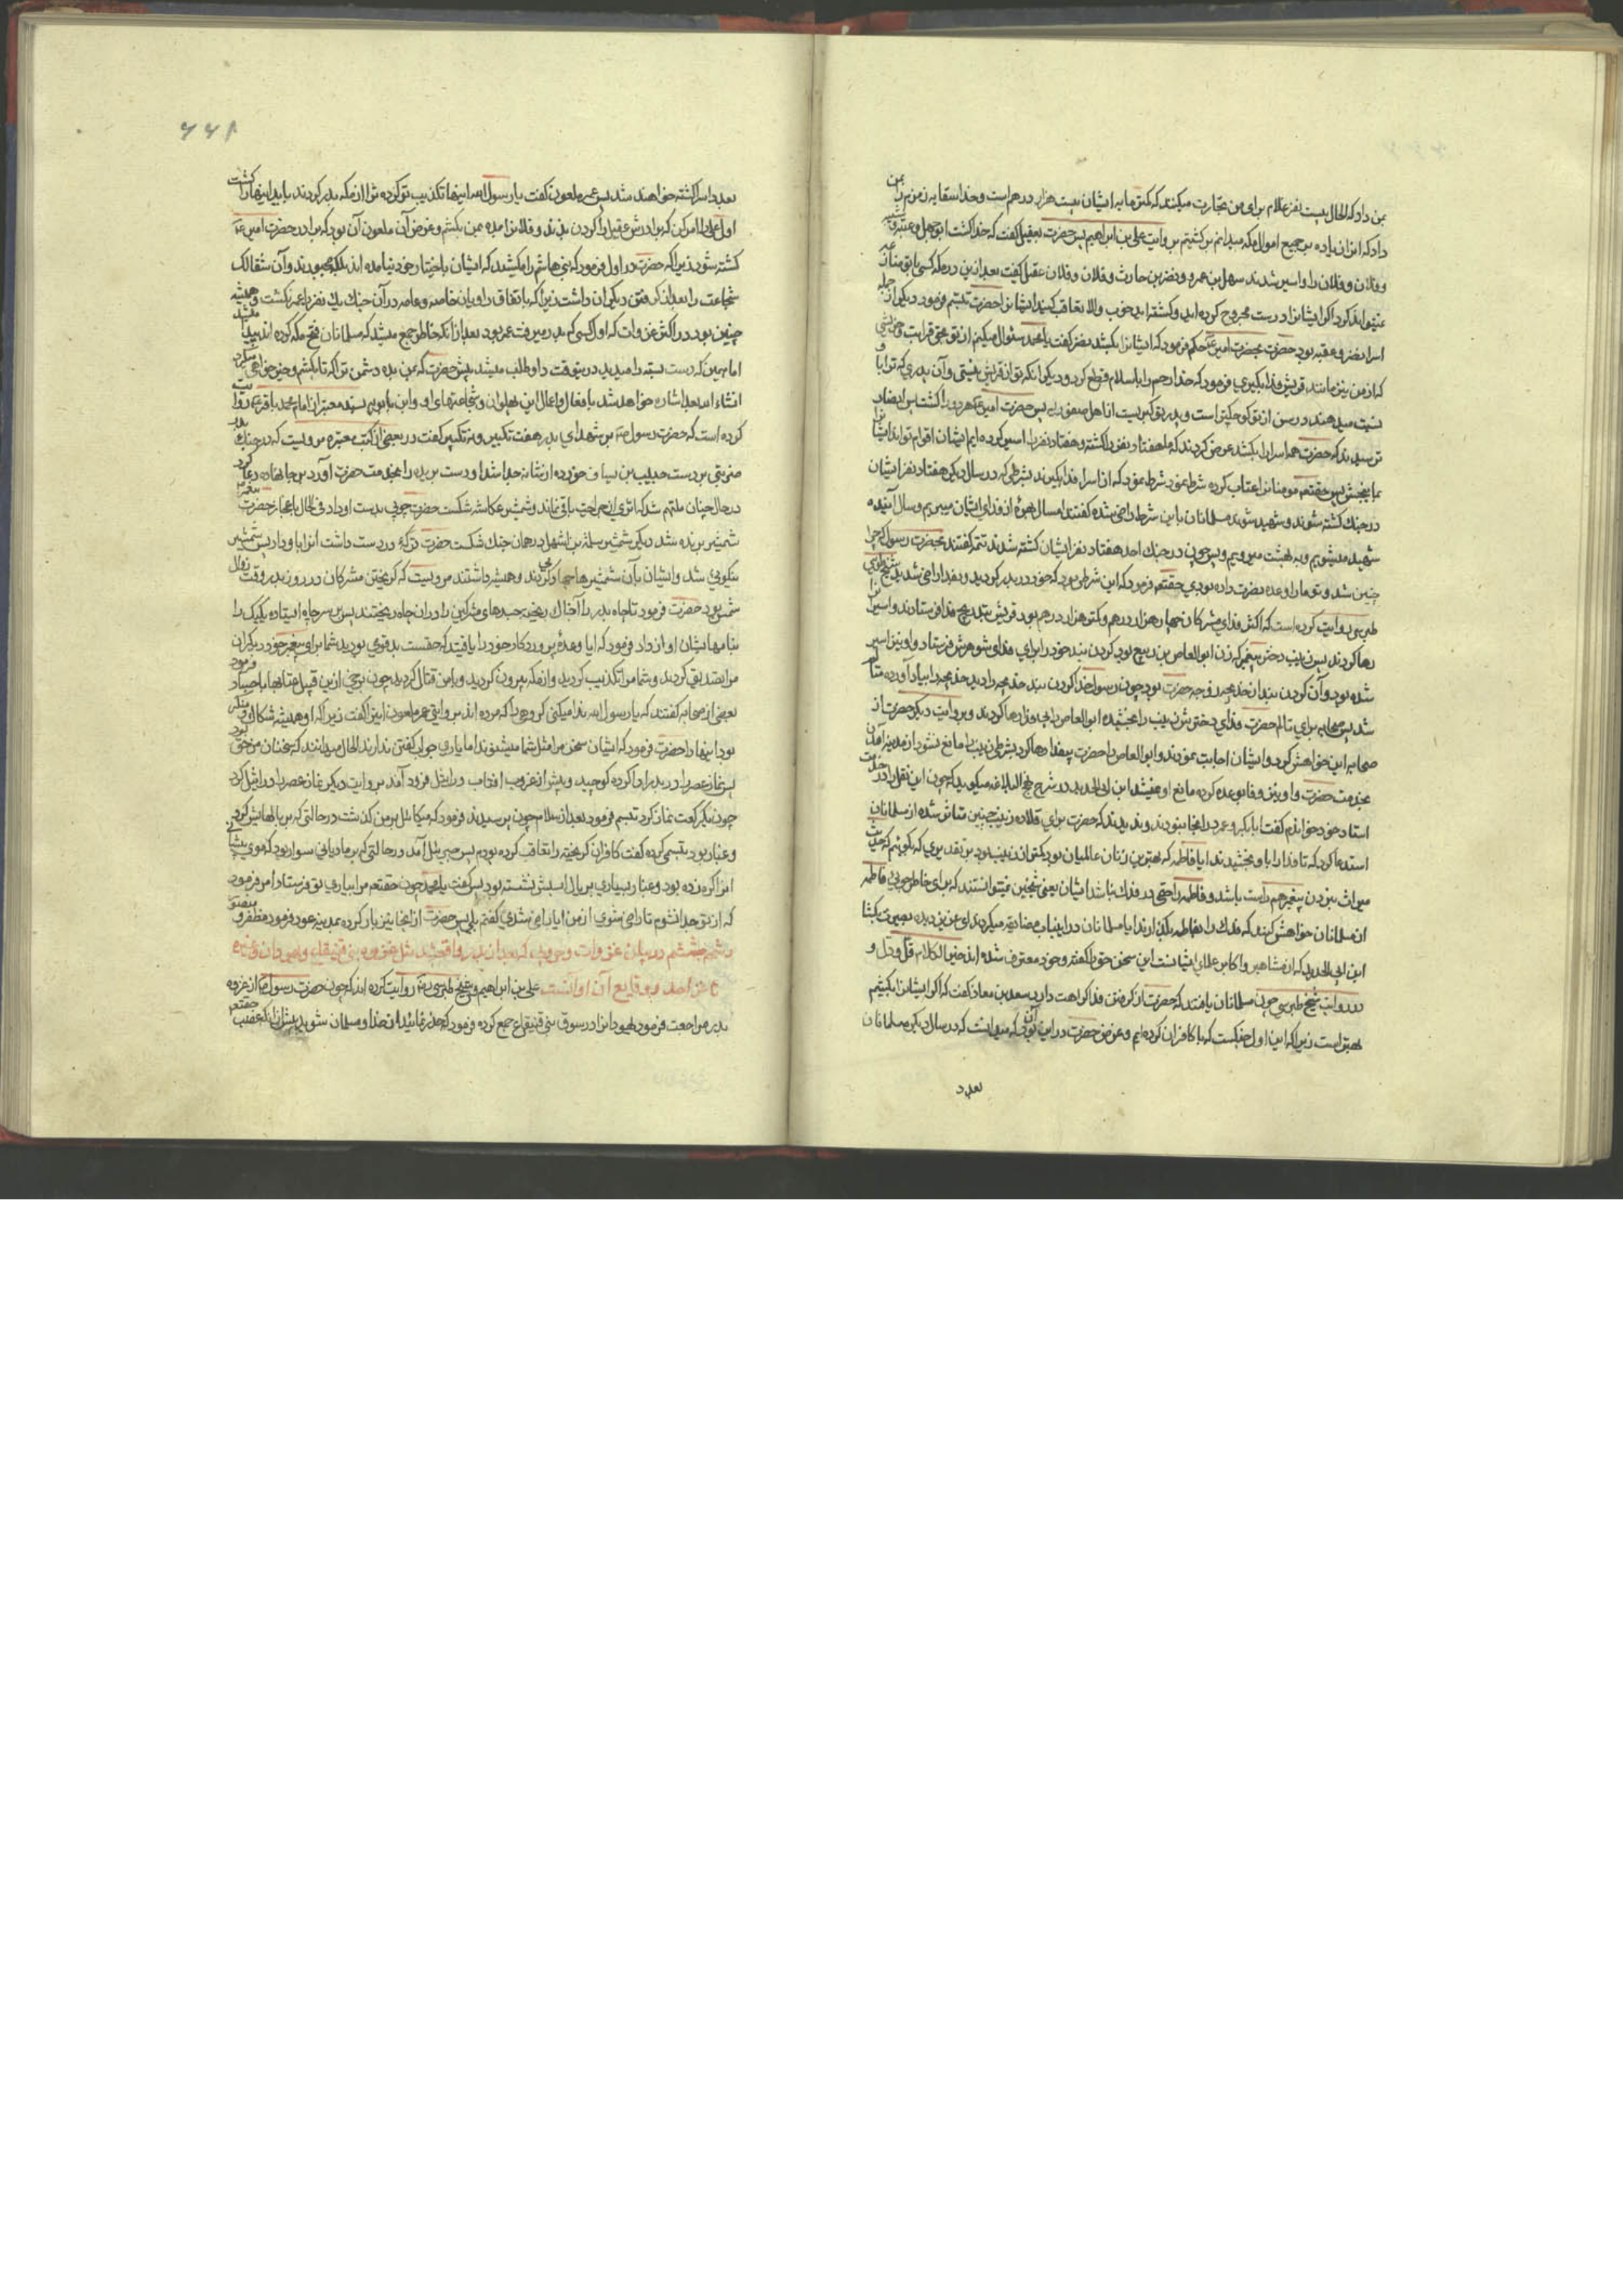 بمن داد که الحال بیست نفر غلام برای من تجارت میکنند که کمتر مایه ایشان بیست هزار درهم است و خدا سقایه زمزم را بمن
داد که از آن زیاده بر جمیع اموال مکه میدانم بروایت علی بن ابراهیم پس حضرت بعقیل گفت که خدا کشت ابو جهل و عتبه و شیبه
و فلان و فلان را و اسیر شدند سهل بن عمرو و نضر بن حارث و فلان و فلان عقیل گفت بعد از این در مکه کسی با تو منازعه
نمیتواند کرد اگر ایشانرا درست مجروح کرده اید و کشته اید خوب و الا تعاقب کنید ایشانرا حضرت تبسم فرمود و یکی از جمله
اسرا نضر و عقبه بود حضرت بحضرت امیر حکم فرمود که ایشانرا بکشد نضر گفت یا محمد سئوال میکنم از تو بحق قرابت و خویشی
که از من نیز مانند قریش فدا بگیری فرمود که خدا رحم را باسلام قطع کرد و دیگر آنکه تو از قریش نیستی و آن پدری که ترا با او
نسبت میدهند در سن از تو کوچکتر است و پدر تو گبریست از اهل صفوریه پس حضرت امیر هر دو را کشت پس انصار
ترسیدند که حضرت همه اسرا را بکشد عرض کردند که ما هفتاد نفر را کشته و هفتاد نفر را اسیر کرده ایم ایشان اقوام تواند ایشانرا
بما ببخش پس حقتعم مومنانرا عتاب کرده شرط نمود که از اسرا فدا بگیرند بشرطی که در سال دیگر هفتاد نفر ایشان
در جنک کشته شوند و شهید شوند مسلمانان باین شرط راضی شده گفتند امسال بهره از فدای ایشان میبریم و سال آینده
شهید میشویم و به بهشت میرویم و پس چون در جنک احد هفتاد نفر ایشان کشته شدند تتمه گفتند بحضرت رسول که چرا
چنین شد و تو ما را وعده نصرت داده بودی حقتعم فرمود که این شرطی بود که خود در بدر کردید و بفدا راضی شدید شیخ طوسی
طبرسی روایت کرده است که اکثر فدای مشرکان چهار هزار درهم و کمتر هزار درهم بود قریش بتدریج فدا فرستادند و اسیرانرا
رها کردند پس زینب دختر پیغمبر که زن ابو العاص بن ربیع بود گردن بند خود را برای فدای شوهرش فرستاد و او نیز اسیر
شده بود و آن گردن بند از خدیجه زوجه حضرت بود چون رسول خدا گردن بند خدیجه را دید خدیجه را بیاد آورده متألم
شد پس صحابه برای تألم حضرت فدای دختر زینب را بخشیده ابو العاص را بی فدا رها کردند و بروایت دیگر حضرت از
صحابه این خواهش کرد و ایشان اجابت نمودند و ابو العاص را حضرت بیفدا رها کرد بشرطی که زینب را مانع نشود از مدینه آمدن
بخدمت حضرت و او نیز وفا بوعده کرده مانع او نمیشد ابن ابی الحدید در شرح نهج البلاغه میگوید که چون این نقل را در خدمت
استاد خود خواندم گفت ابا بکر و عمر در اینجا نبودند و ندیدند که حضرت برای قلاده زینب چنین متأثر شده از مسلمانان
استدعا کرد که تا فدا را باو بخشیدند ایا فاطمه که بهترین زنان عالمیان بود کمتر از زینب بود بر تقدیری که بگوئیم که حدیث
میراث نبردن پیغمبر هم راست باشد و فاطمه را حقی در فدک نباشد ایشان یعنی شیخین نمیتوانستند که برای خاطر جوئی فاطمه
از مسلمانان خواهش کنند که فدک را بفاطمه بگذارند ایا مسلمانان در اینباب مضایقه میکردند ای عزیز دیده بصیرت بگشا
ابن ابی الحدید که از مشاهیر و اکابر علمای ایشانست این سخن حق را گفته و خود معترف شده اند خیر الکلام قل و دل و
در روایت شیخ طبرسی چون مسلمانان یافتند که حضرت از گرفتن فدا کراهت دارد سعد بن معاذ گفت که اگر ایشانرا بکشیم
بهتر است زیرا که این اول جنگیست که با کافران کرده ایم و غرض حضرت در این آن بود که میدانست که در سال دیگر مسلمانان
بعدد
۶۶۱
بعدد اسرا کشته خواهند شد پس عمر ملعون گفت یا رسول الله اینها تکذیب تو کرده ترا از مکه بدر کردند باید اینها را کشت
اول علی را امر کن که برادرش عقیل را گردن بزند و فلانرا بده بمن بکشم و غرض آن ملعون آن بود که برادر حضرت امیر
کشته شود زیرا که حضرت در اول فرمود که بنی هاشم را مکشید که ایشان باختیار خود نیامده اند بلکه مجبورند و آن
شجاعت را بعد از گرفتن دیگران داشت زیرا که باتفاق راویان خاصه و عامه در آن جنک یک نفر را عمر نکشت و همیشه
چنین بود در اکثر غزوات که اول کسی که بدر میرفت عمر بود بعد از آنکه خاطر جمع میشد که مسلمانان فتح کرده اند پیدا میشد
اما همین که دست بسته را میدید در آنوقت داوطلب میشد پیش حضرت که بمن بده دشمن ترا که تا بکشم
انشاء الله بعد اشاره خواهد شد بافعال و اعمال این پهلوان و شجاعتهای او و ابن بابویه بسند معتبر از امام محمد باقر روایت
کرده است که حضرت رسول بر شهدای بدر هفت تکبیر و نه تکبیر گفت در بعضی از کتب معتبره مرویست که در جنک بدر
ضربتی بر دست حبیب بن یساف خورده از شانه جدا شد او دست بریده را بخدمت حضرت آورد بر جا نهاده دعا کرد
در حال چنان ملتئم شد که اثری از جراحت باقی نماند و شمشیر عکاشه شکست حضرت چوبی بدست او داد فی الحال باعجاز حضرت
شمشیر برنده شد دیگر شمشیر سلمة بن اشهل در همان جنک شکست حضرت ترکه در دست داشت انرا باو داد پس شمشیر
نیکوئی شد و ایشان بآن شمشیرها جهاد کردند و همیشه داشتند مرویست که گریختن مشرکان در روز بدر وقت زوال
شمس بود حضرت فرمود تا چاه بدر را ریخته جسدهای مشرکین را در آن چاه ریختند پس بر سر چاه ایستاده یک یک را
بنامهایشان آواز داد و فرمود که ایا وعده پروردگار خود را یافتید که حقست بد قومی بودید شما برای پیغمبر خود دیگران
مرا تصدیق کردند و شما مرا تکذیب کردید و از مکه بیرون کردید و با من قتال کردید چون برخی ازین قبیل عتابها باجساد فرمود
بعضی از صحابه گفتند که یا رسول الله ندا میکنی گروهی را که مرده اند بروایتی عمر ملعون این را گفت زیرا که او همیشه شکاک و منکر
بود اینها را حضرت فرمود که ایشان سخن مرا مثل شما میشنوند اما یارای جواب گفتن ندارند الحال میدانند که سخنان من حق بود
پس نماز عصر را در بدر ادا کرده کوچید و پیش از غروب افتاب در اثیل فرود آمد بروایت دیگر نماز عصر را در اثیل کرد
چون یکرکعت نماز کرد تبسم فرمود بعد از سلام چون پرسیدند فرمود که میکائیل بر من گذشت در حالتی که بر بالهایش گرد
و غبار بود تبسمی کرده گفت کافران گریخته را تعاقب کرده بودم پس جبرئیل آمد در حالتی که بر مادیانی سوار بود که موی پیشانی
انرا گره زده بود و غبار بسیاری بر یال اسبش نشسته بود پس گفت یا محمد چون حقتعم مرا بیاری تو فرستاد امر فرمود
که از تو جدا نشوم تا راضی شوی از من ایا راضی شدی گفتم بلی پس حضرت از آنجا نیز بار کرده بمدینه عود فرمود مظفر و منصور
در بیان غزوات و حروب که بعد از بدر واقع شد مثل غزوه بنی قینقاع و غیره
تا غزا احد و وقایع آن اوانست علی بن ابراهیم و شیخ طبرسی روایت کرده اند که چون حضرت رسول از غزوه
بدر مراجعت فرمود یهودانرا در سوق بنی قینقاع جمع کرده فرمود که حذر نمائید از خدا و مسلمان شوید پیش از آنکه حقتعم